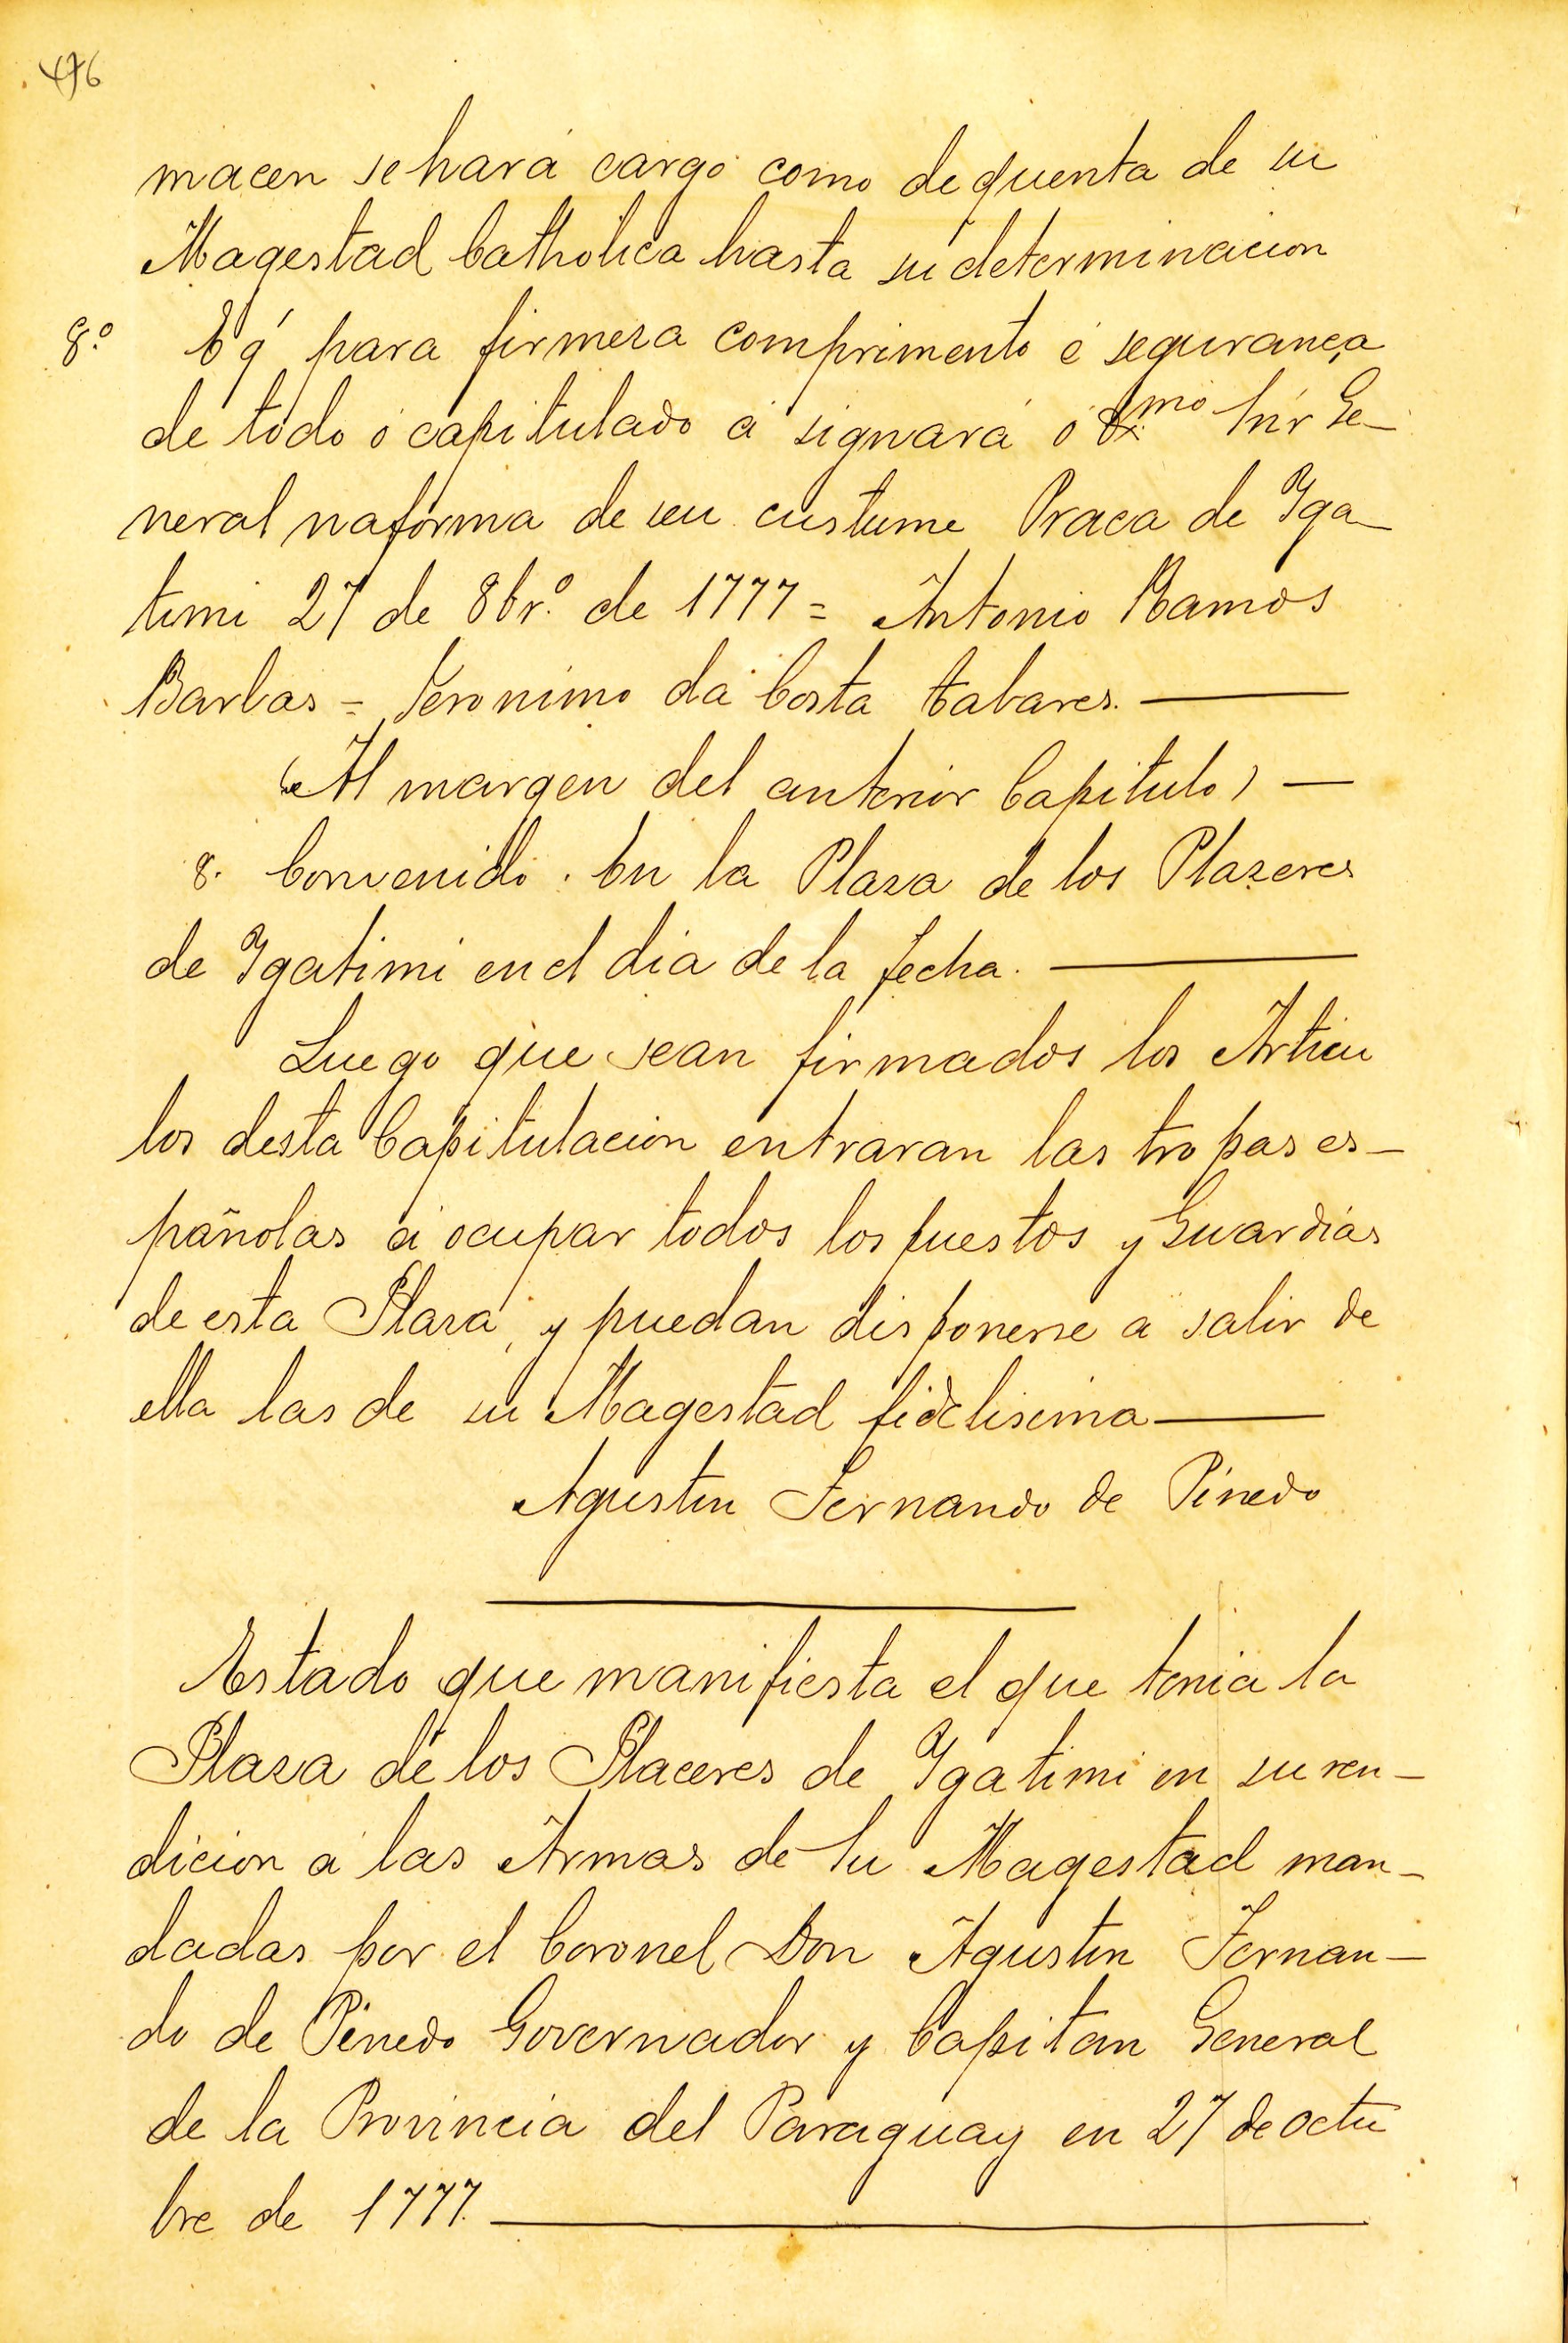 macen se hará cargo como de quenta de su
Magestad Catholica hasta su determinacion
8.º E q' para firmeza comprimento é segurança
de todo ó capitulado á signará ó Ex.mo Snr Ge-
neral na forma de seu custume Praca de Yga-
timi 27 de 8br.º de 1777 = Antonio Ramos
Barbas = Jeronimo da Costa Tabares. —
(Al margen del anterior Capitulo) —
8. Convenido. En la Plaza de los Plazeres
de Ygatimi en el dia de la fecha. —
Luego que sean firmados los Articu
los desta Capitulacion entraran las tropas es-
pañolas á ocupar todos los puestos y Guardias
de esta Plaza, y puedan disponerse a salir de
ella las de su Magestad fidelisima —
Agustin Fernando de Pinedo
Estado que manifiesta el que tenia la
Plaza de los Placeres de Ygatimi en su ren-
dicion á las Armas de Su Magestad man-
dadas por el Coronel Don Agustin Fernan-
do de Pinedo Governador y Capitan General
de la Provincia del Paraguay en 27 de octu
bre de 1777. —